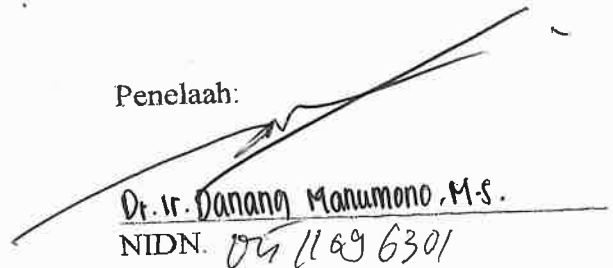 Penelaah:
Dr. Ir. Danang Manumono, M.S.
NIDN. 0511096301